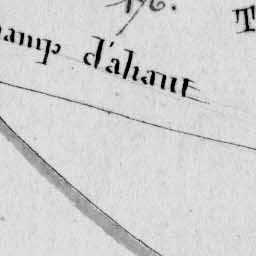 196.
T
hamp d'ahaut